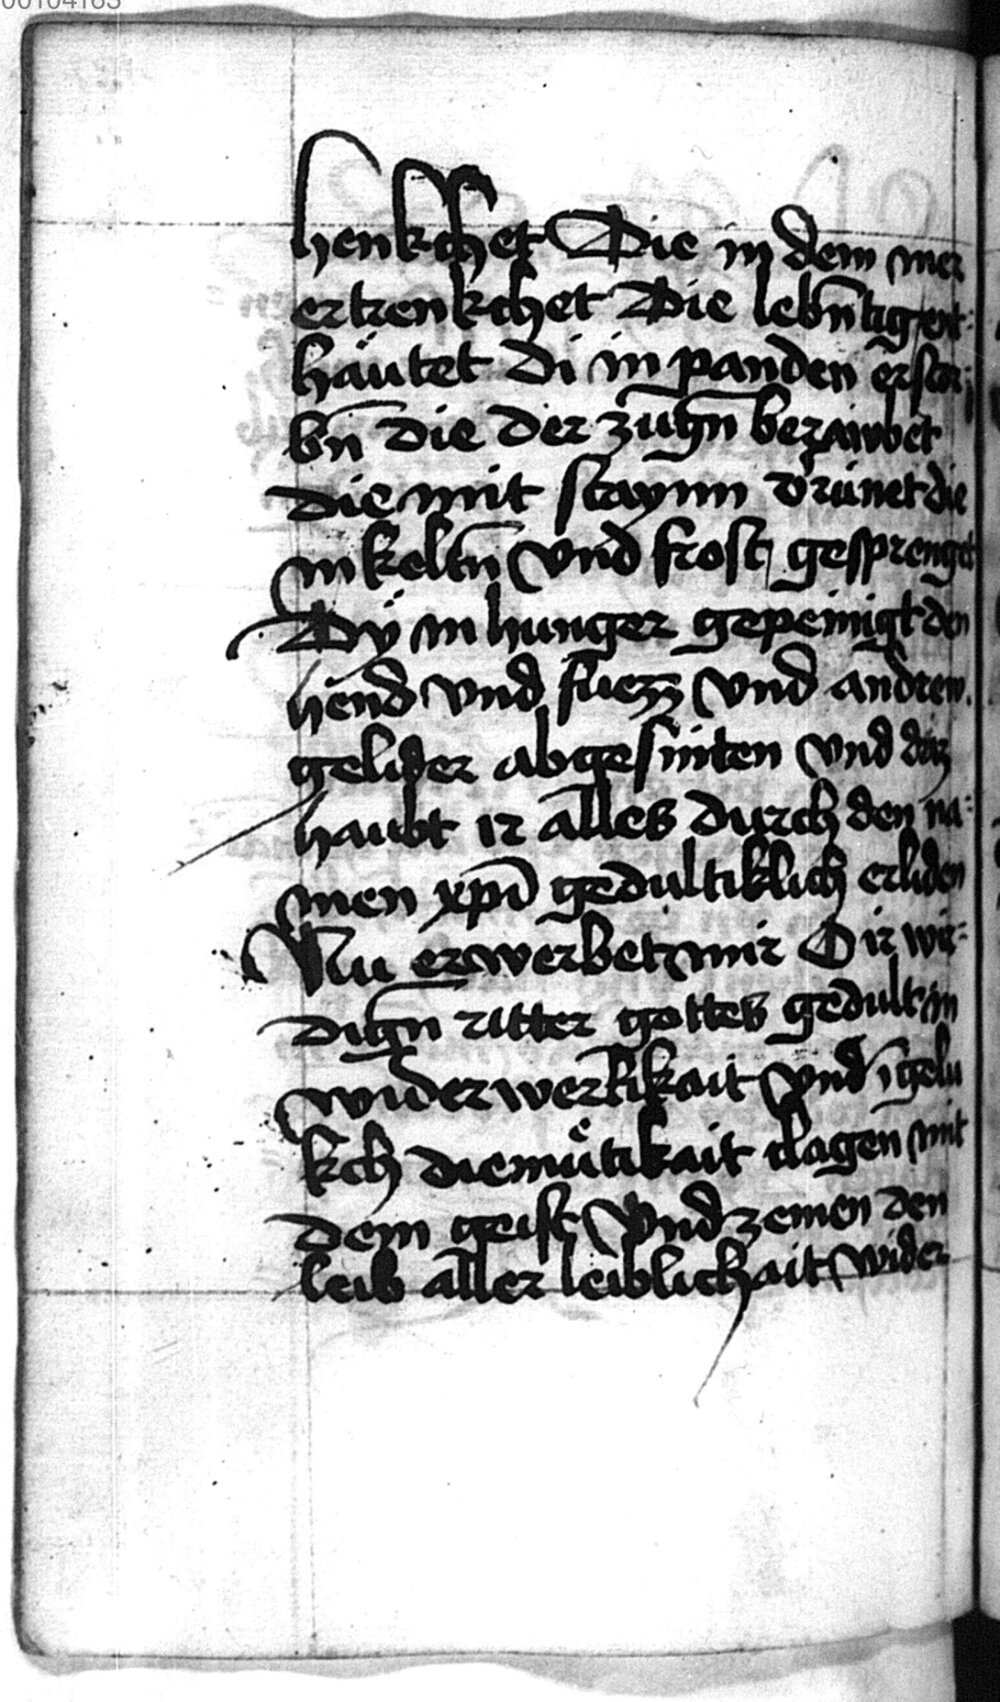 00104163
henkchet Die in dem mer
ertrenkchet Die lebn̄tigen
häutet di in panden erstor
bn̄ die der zūgn̄ beraiwbet
die mit staynn v̓rünet die
in keltn̄ vnd frost gesprenget
Dÿ in hunger gepeinigt den
hend vnd fuezz vnd andrew
gelider abgesniten vnd daz
haubt ir alles durch den na:
men xp̄i gedultiklich erliden
Nu erwerbet mir O ir wir:
dign̄ ritter gottes gedult in
widerwertikait vnd ī gelu
kch diemuͤtikait klagen mit
dem geist Vnd zemen den
leib aller leiblichait wider